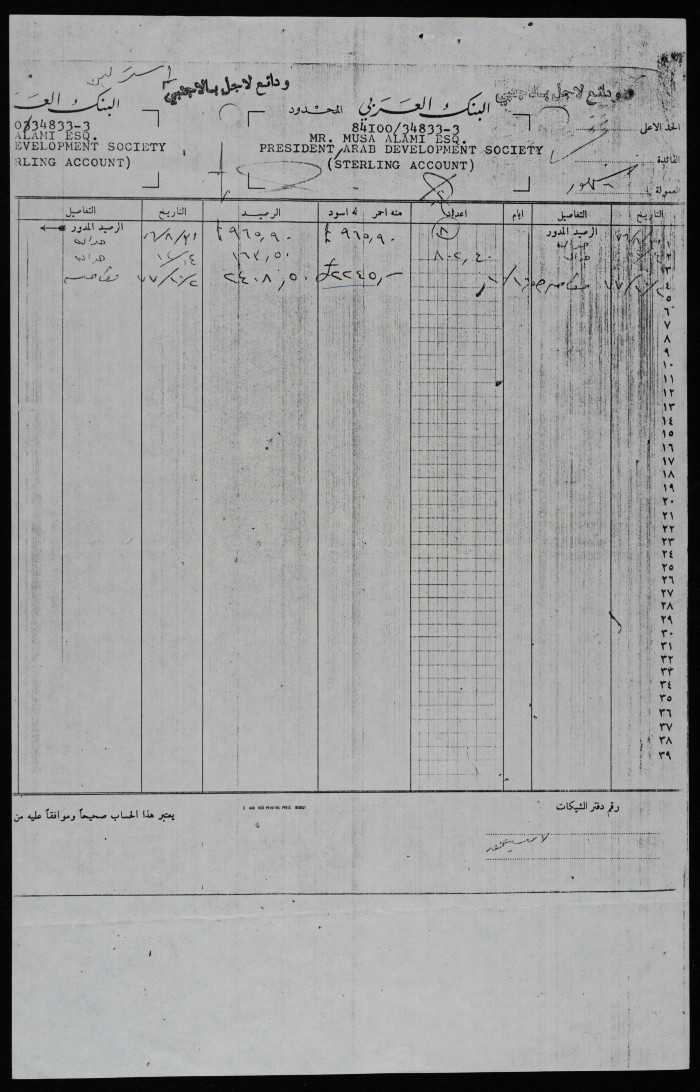 استرليني
ودائع لاجل بالاجنبي
ودائع لاجل بالاجنبي
البنك العربي المحدود
البنك العر
84100/34833-3
MR. MUSA ALAMI ESQ.
PRESIDENT ARAB DEVELOPMENT SOCIETY
(STERLING ACCOUNT)
0/34833-3
ALAMI ESQ.
EVELOPMENT SOCIETY
RLING ACCOUNT)
الحد الاعلى
الفائدة
العمولة
التاريخ التفاصيل ايام اعداد منه احمر له اسود الرصيد التاريخ التفاصيل
١ الرصيد المدور ٨ ٩٦٥,٩٠ ٩٦٥,٩٠ ٧٦/٨/٣١ الرصيد المدور
٢ ٨٠٢,٤٠ ١٦٣,٥٠
٤ ٧٧/١٠/٢ ٢٢٤٥,- ٢٤٠٨,٥٠ ٧٧/١٠/٢
٥
٦
٧
٨
٩
١٠
١١
١٢
١٣
١٤
١٥
١٦
١٧
١٨
١٩
٢٠
٢١
٢٢
٢٣
٢٤
٢٥
٢٦
٢٧
٢٨
٢٩
٣٠
٣١
٣٢
٣٣
٣٤
٣٥
٣٦
٣٧
٣٨
٣٩
رقم دفتر الشيكات
يعتبر هذا الحساب صحيحاً وموافقاً عليه من